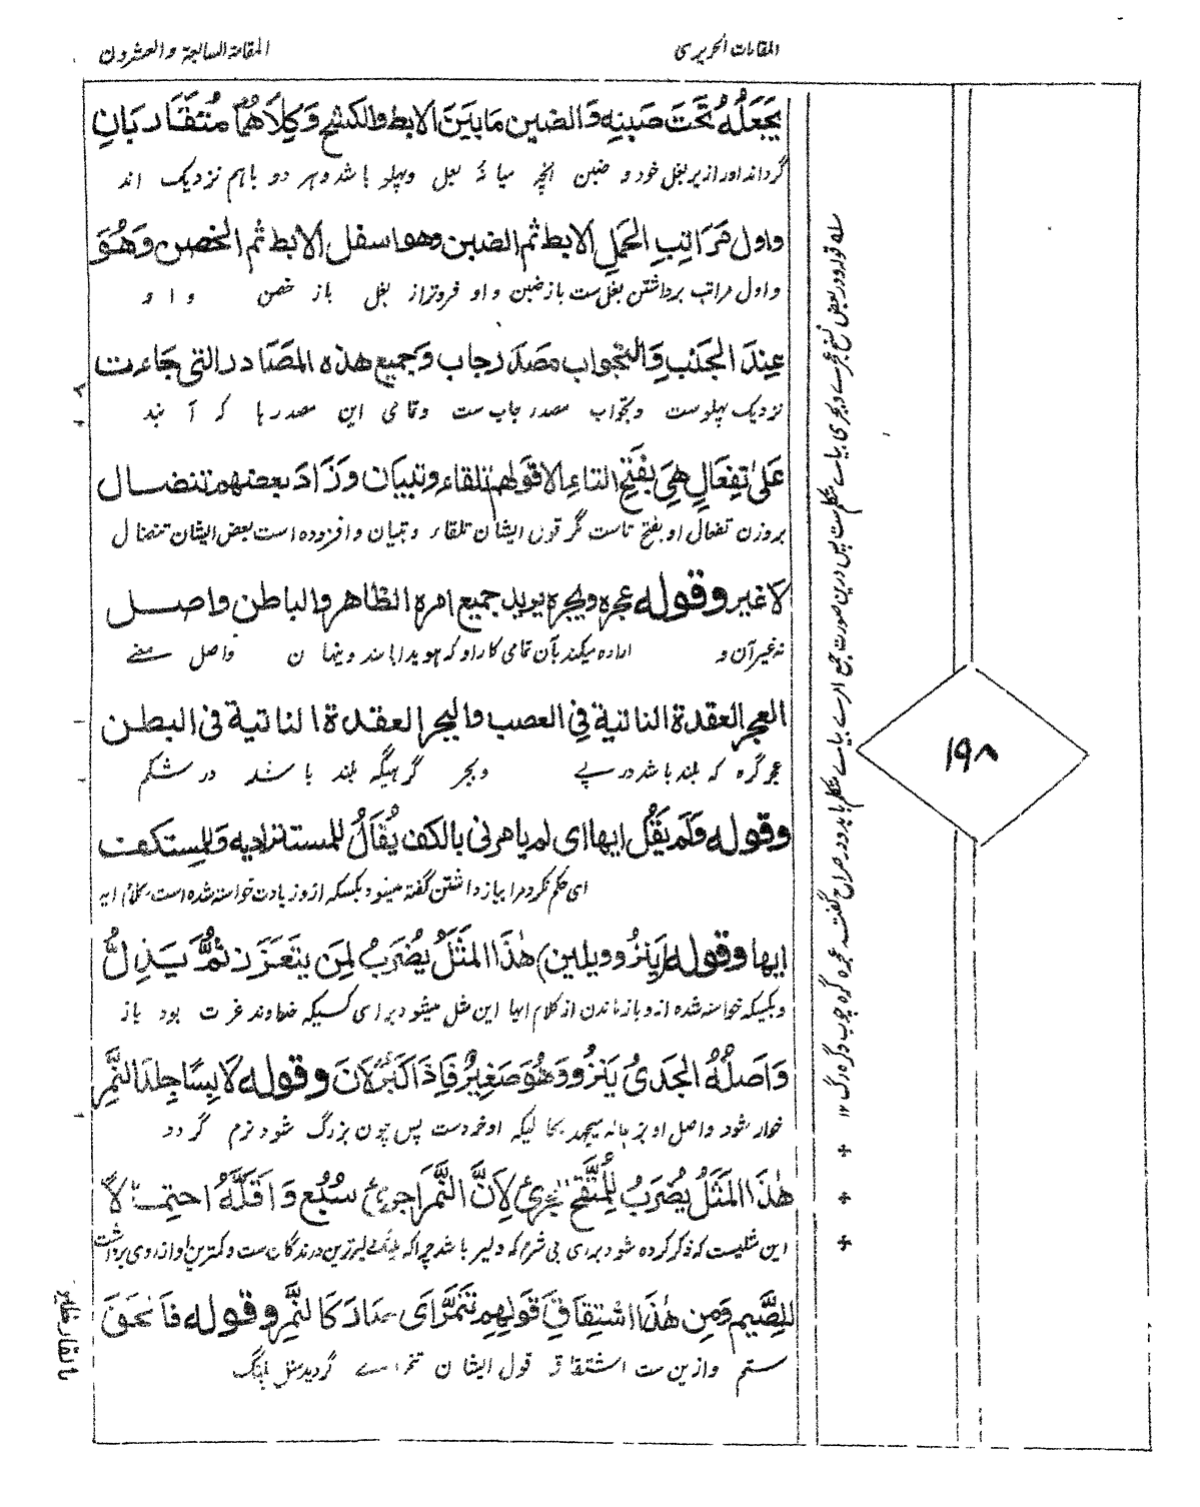 المقامات الحريرى
المقامة السابعة والعشرون
يَجعَلُهُ تَحَتَ ضَبنِهِ وَالضبن مَا بَينَ الابط والكشح وَكِلَاهُمَا مُتَقَاربَانِ
گرداند اور از یر بغل خود و ضبن انچه میانۂ بغل وپهلو باشد وهر دو باهم نزدیک اند
واول مَرَاتِبِ الحَملِ الابط ثم الضبن وهو اسفل الابط ثم الخصن وَهُوَ
واول مراتب برداشتن بغل ست باز ضبن و او فروتر از بغل باز خصن و او
عِندَ الجَنبِ وَالتجواب مَصدَر جاب وَجميع هذه المصَادر التى جَاءت
نزدیک پهلو ست وتجواب مصدر جاب ست وتمامی این مصدرها که آیند
عَلىٰ تِفعَالٍ هِيَ بِفَتحِ التاءِ الا قولهم تلقاء وتبيان وَزَادَ بعضهم تنضال
بروزن تفعال او بفتح تاست مگر قول ایشان تلقاء و تبیان وافزوده است بعض ایشان تنضال
لا غير وقوله عجره وبجره يريد جميع امره الظاهر والباطن واصل
نه غیر آن و اراده میکند بآن تمامی کار او که هویدا باشد وپنهان واصل معنے
العجر العقدة الناتية فِي العصب والبجر العقدة الناتية فى البطن
عجر گره که بلند باشد در پے وبجر گرهیکه بلند باشد در شکم
وقوله وَلَم يَقُل ايها اى لم يامرنى بالكف يُقَالُ للمستزاد ايه وَللمِستَكف
ای حکم نکرد مرا بباز داشتن گفته میشود بکسیکه از و زیادت خواسته شده است کلام ایه
ايها وقوله (يَنزُو ويلين) هٰذَا المَثَلُ يُضرَبُ لِمَن يَتَعَزَّز ثُمَّ يَذِلُّ
وبکسیکه خواسته شده از و باز ماندن از کلام ایها این مثل میشود برای کسیکه خداوند عزت بود باز
وَاَصلُهُ الجَدىُ يَنزُو وَهُوَ صَغِيرٌ فَاِذَا كَبُرَ لَانَ وقوله لابِسًا جِلدَ النَّمِرِ
خوار شود واصل او بزبچه می جهد بحالیکه او خردست پس چون بزرگ شود نرم گردد
هٰذَا المَثَلُ يُضرَبُ لِلمُتَّقِحِ الجَرِئ لِاَنَّ النَّمِرَ اجرئ سَبُع وَاَقَلُّهُ احتِمَالًا
این مثلیست که ذکر کرده شود برای بی شرم که دلیر باشد چراکه پلنگ دلیرترین درندگان ست و کمترین او از روی برداشت
لِلضَّيمِ وَمِن هٰذَا اشتِقَاقُ قَولِهِم تَنَمَّرَ اَى صَارَ كَالنَّمِرِ وقوله فَالحَقَ
ستم وازین ست اشتقاق قول ایشان تنمر اے گردید مثل پلنگ
بالقارظين
سله قوله ودر بعض نسخ عجرے وبجرى بیاے متکلم ست پس درین صورت جمیع امرے بیاے متکلم باید ودر صراح گفته عجره گره چوب وگره رگ ۱۲
۱۹۸